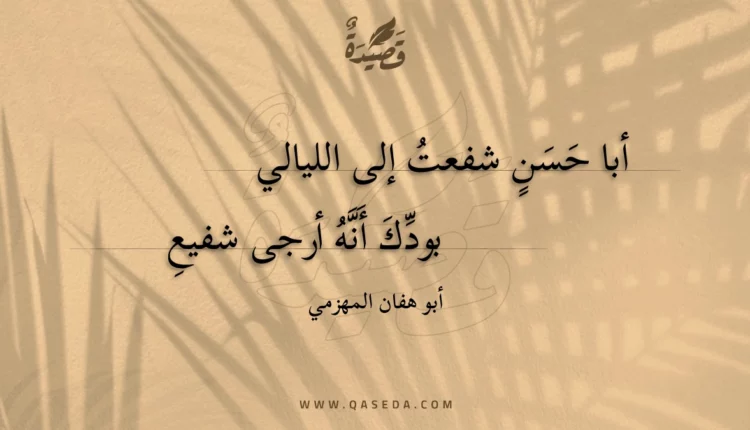 قَصِيْدَةٌ
أبا حَسَنٍ شفعتُ إلى الليالي
بودِّكَ أَنَّهُ أرجى شفيعِ
أبو هفان المهزمي
WWW.QASEDA.COM